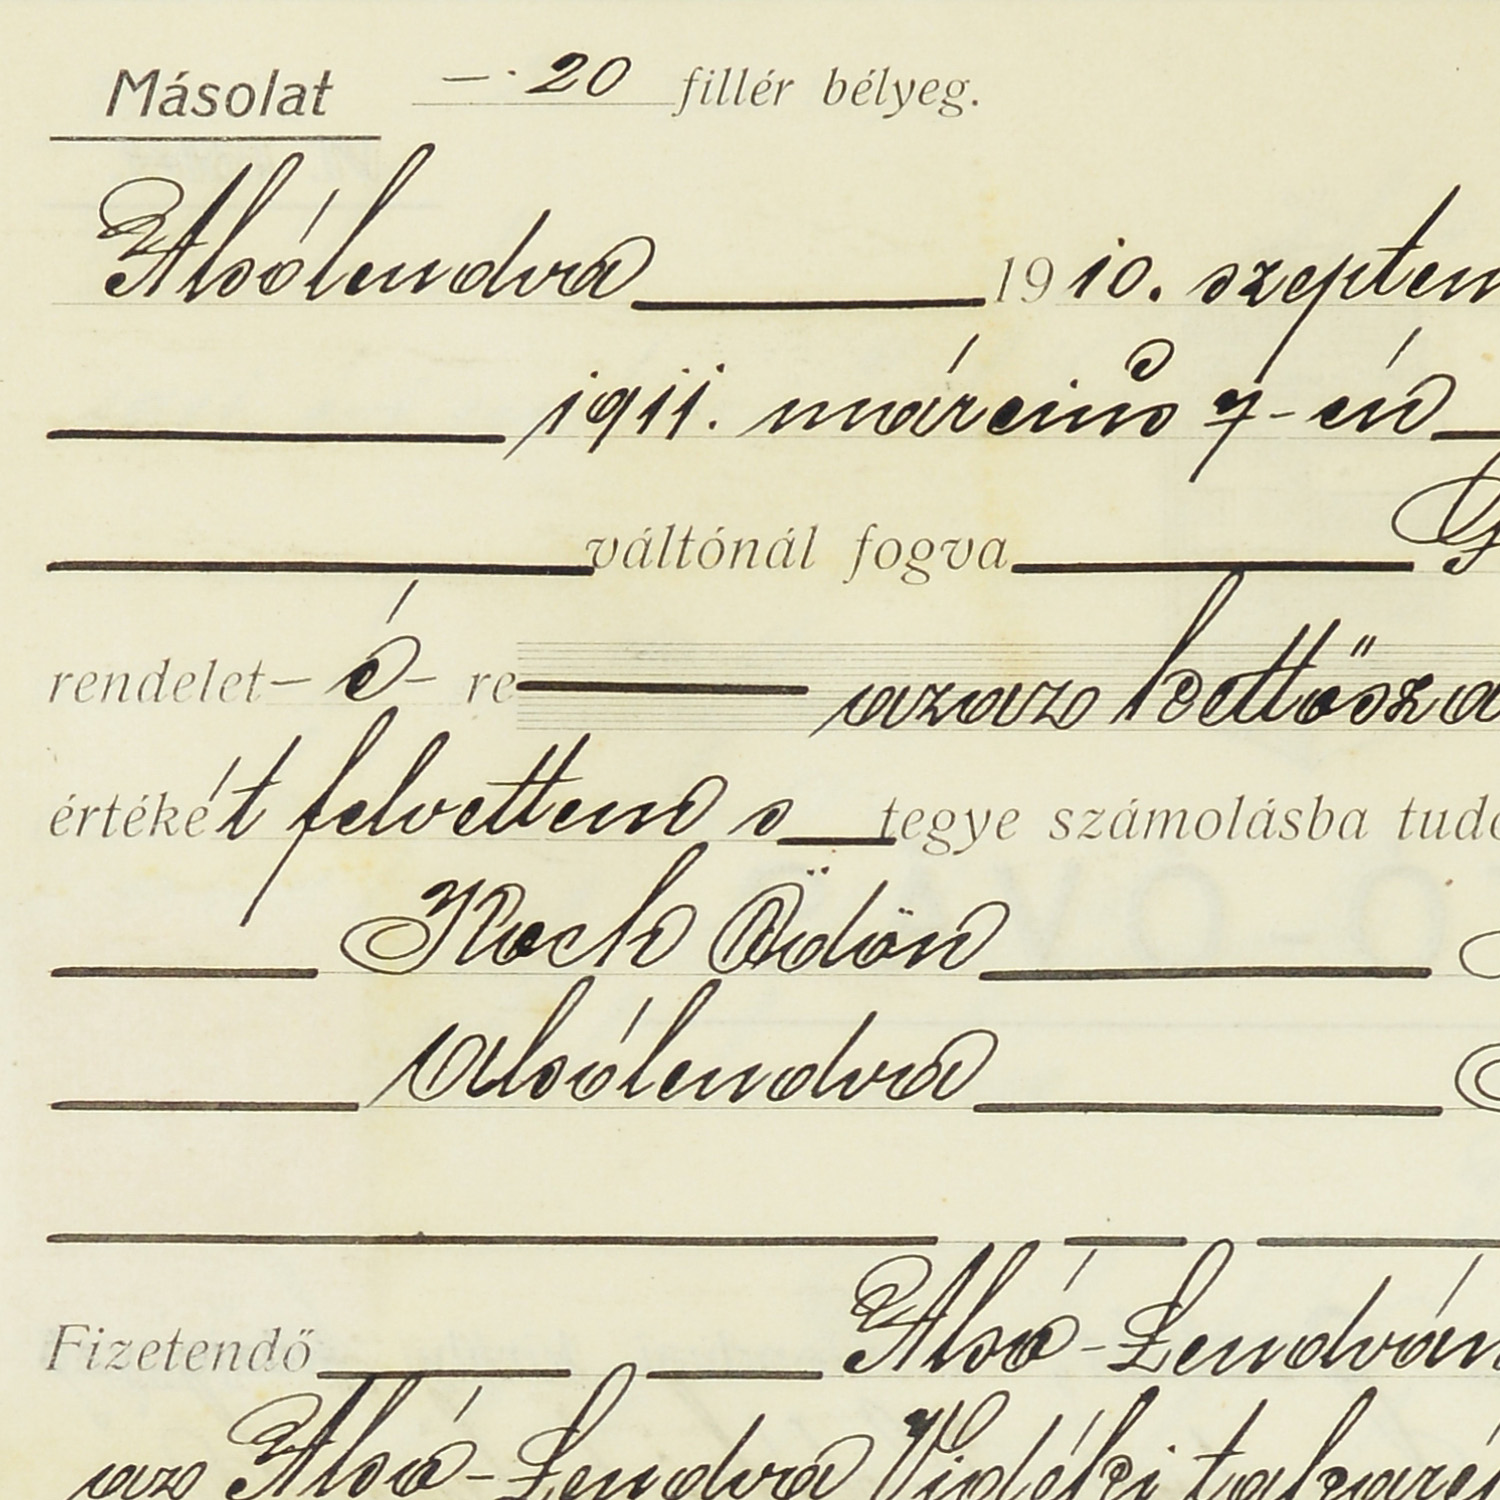 Másolat —·20 fillér bélyeg.
Alsólendva 1910. szeptem
1911. március 7-én
váltónál fogva
rendelet-é-re azaz kettősza
értékét felvettem s tegye számolásba tudó
Koch Ödön
Alsólendva
Fizetendő Alsó-Lendván
az Alsó-Lendva Vidéki takaré